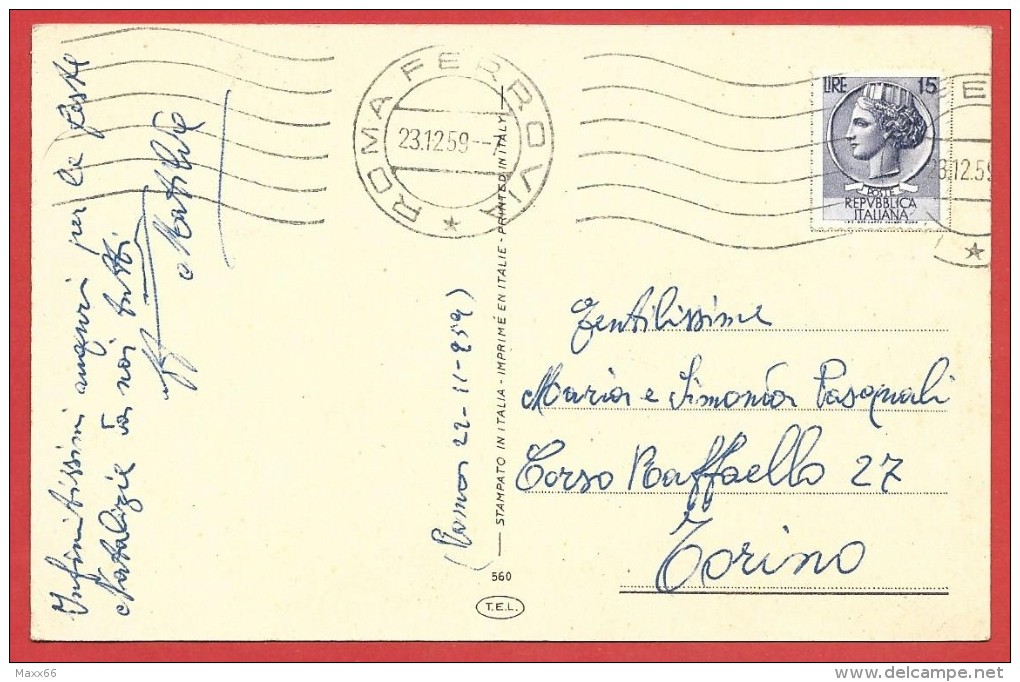 Infinitissimi auguri per le feste
Natalizie da noi tutti.
Matilde
(Roma 22-11-959)
STAMPATO IN ITALIA - IMPRIMÉ EN ITALIE - PRINTED IN ITALY
560
T.E.L.
ROMA FERROVIA
23.12.59
LIRE 15
POSTE
REPVBBLICA
ITALIANA
23.12.59
Gentilissime
Maria e Simonda Pasquali
Corso Raffaello 27
Torino
Maxx66
www.delcampe.net